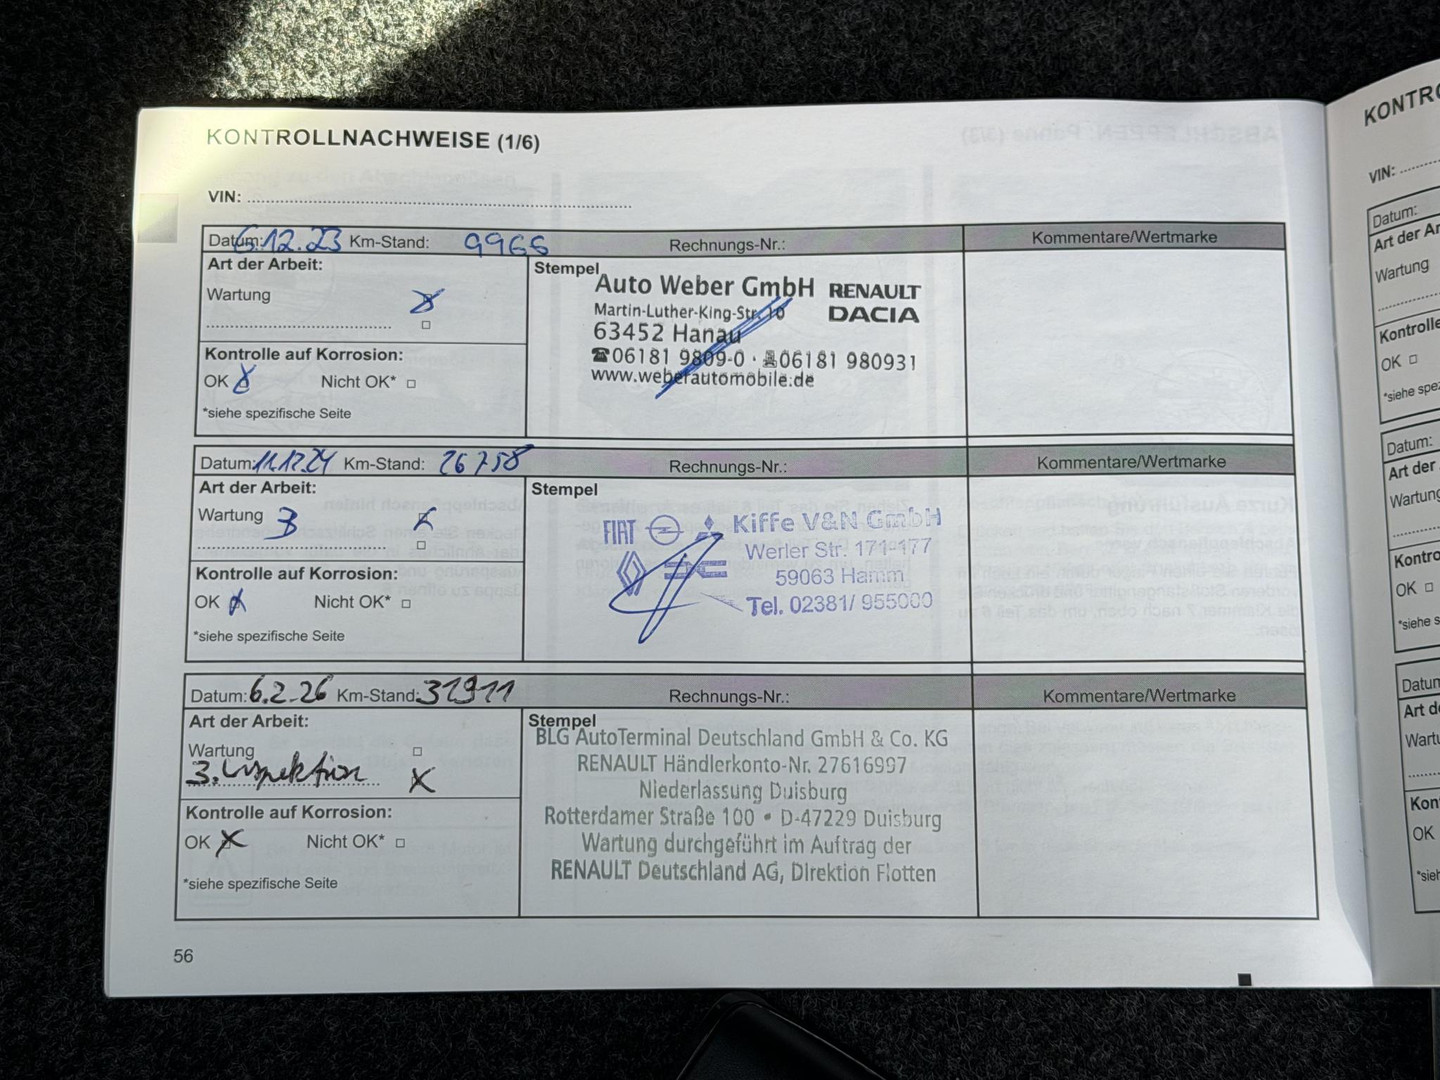 KONTROLLNACHWEISE (1/6)
VIN:
Datum: 6.12.23 Km-Stand: 9966 Rechnungs-Nr.: Kommentare/Wertmarke
Art der Arbeit:
Wartung
Kontrolle auf Korrosion:
OK Nicht OK*
*siehe spezifische Seite
Stempel
Auto Weber GmbH RENAULT
Martin-Luther-King-Str. 10 DACIA
63452 Hanau
☎06181 9809-0 · 06181 980931
www.weberautomobile.de
Datum: 11.12.24 Km-Stand: 26758 Rechnungs-Nr.: Kommentare/Wertmarke
Art der Arbeit:
Wartung 3
Kontrolle auf Korrosion:
OK Nicht OK*
*siehe spezifische Seite
Stempel
FIAT Kiffe V&N GmbH
Werler Str. 171-177
59063 Hamm
Tel. 02381/ 955000
Datum: 6.2.26 Km-Stand: 31911 Rechnungs-Nr.: Kommentare/Wertmarke
Art der Arbeit:
Wartung
3. Inspektion
Kontrolle auf Korrosion:
OK X Nicht OK*
*siehe spezifische Seite
Stempel
BLG AutoTerminal Deutschland GmbH & Co. KG
RENAULT Händlerkonto-Nr. 27616997
Niederlassung Duisburg
Rotterdamer Straße 100 • D-47229 Duisburg
Wartung durchgeführt im Auftrag der
RENAULT Deutschland AG, Direktion Flotten
56
VIN:
Datum:
Wartung
OK
Datum:
Art der
OK
Art de
OK